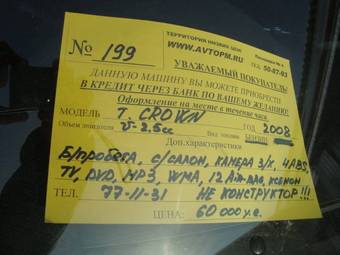 ТЕРРИТОРИЯ НИЗКИХ ЦЕН
WWW.AVTOPM.RU тел. 50-87-93
№ 199
УВАЖАЕМЫЙ ПОКУПАТЕЛЬ!
ДАННУЮ МАШИНУ ВЫ МОЖЕТЕ ПРИОБРЕСТИ
В КРЕДИТ ЧЕРЕЗ БАНК ПО ВАШЕМУ ЖЕЛАНИЮ!
Оформление на месте в течение часа.
МОДЕЛЬ T. CROWN
Объем двигателя V-2,5сс Вид топлива год 2008
Доп.характеристики
Б/пробега, с/салон, камера з/х, 4ABS,
TV, DVD, MP3, WMA, 12 Air-bag, ксенон
ТЕЛ. 77-11-31 НЕ КОНСТРУКТОР!!!
ЦЕНА: 60 000 у.е.